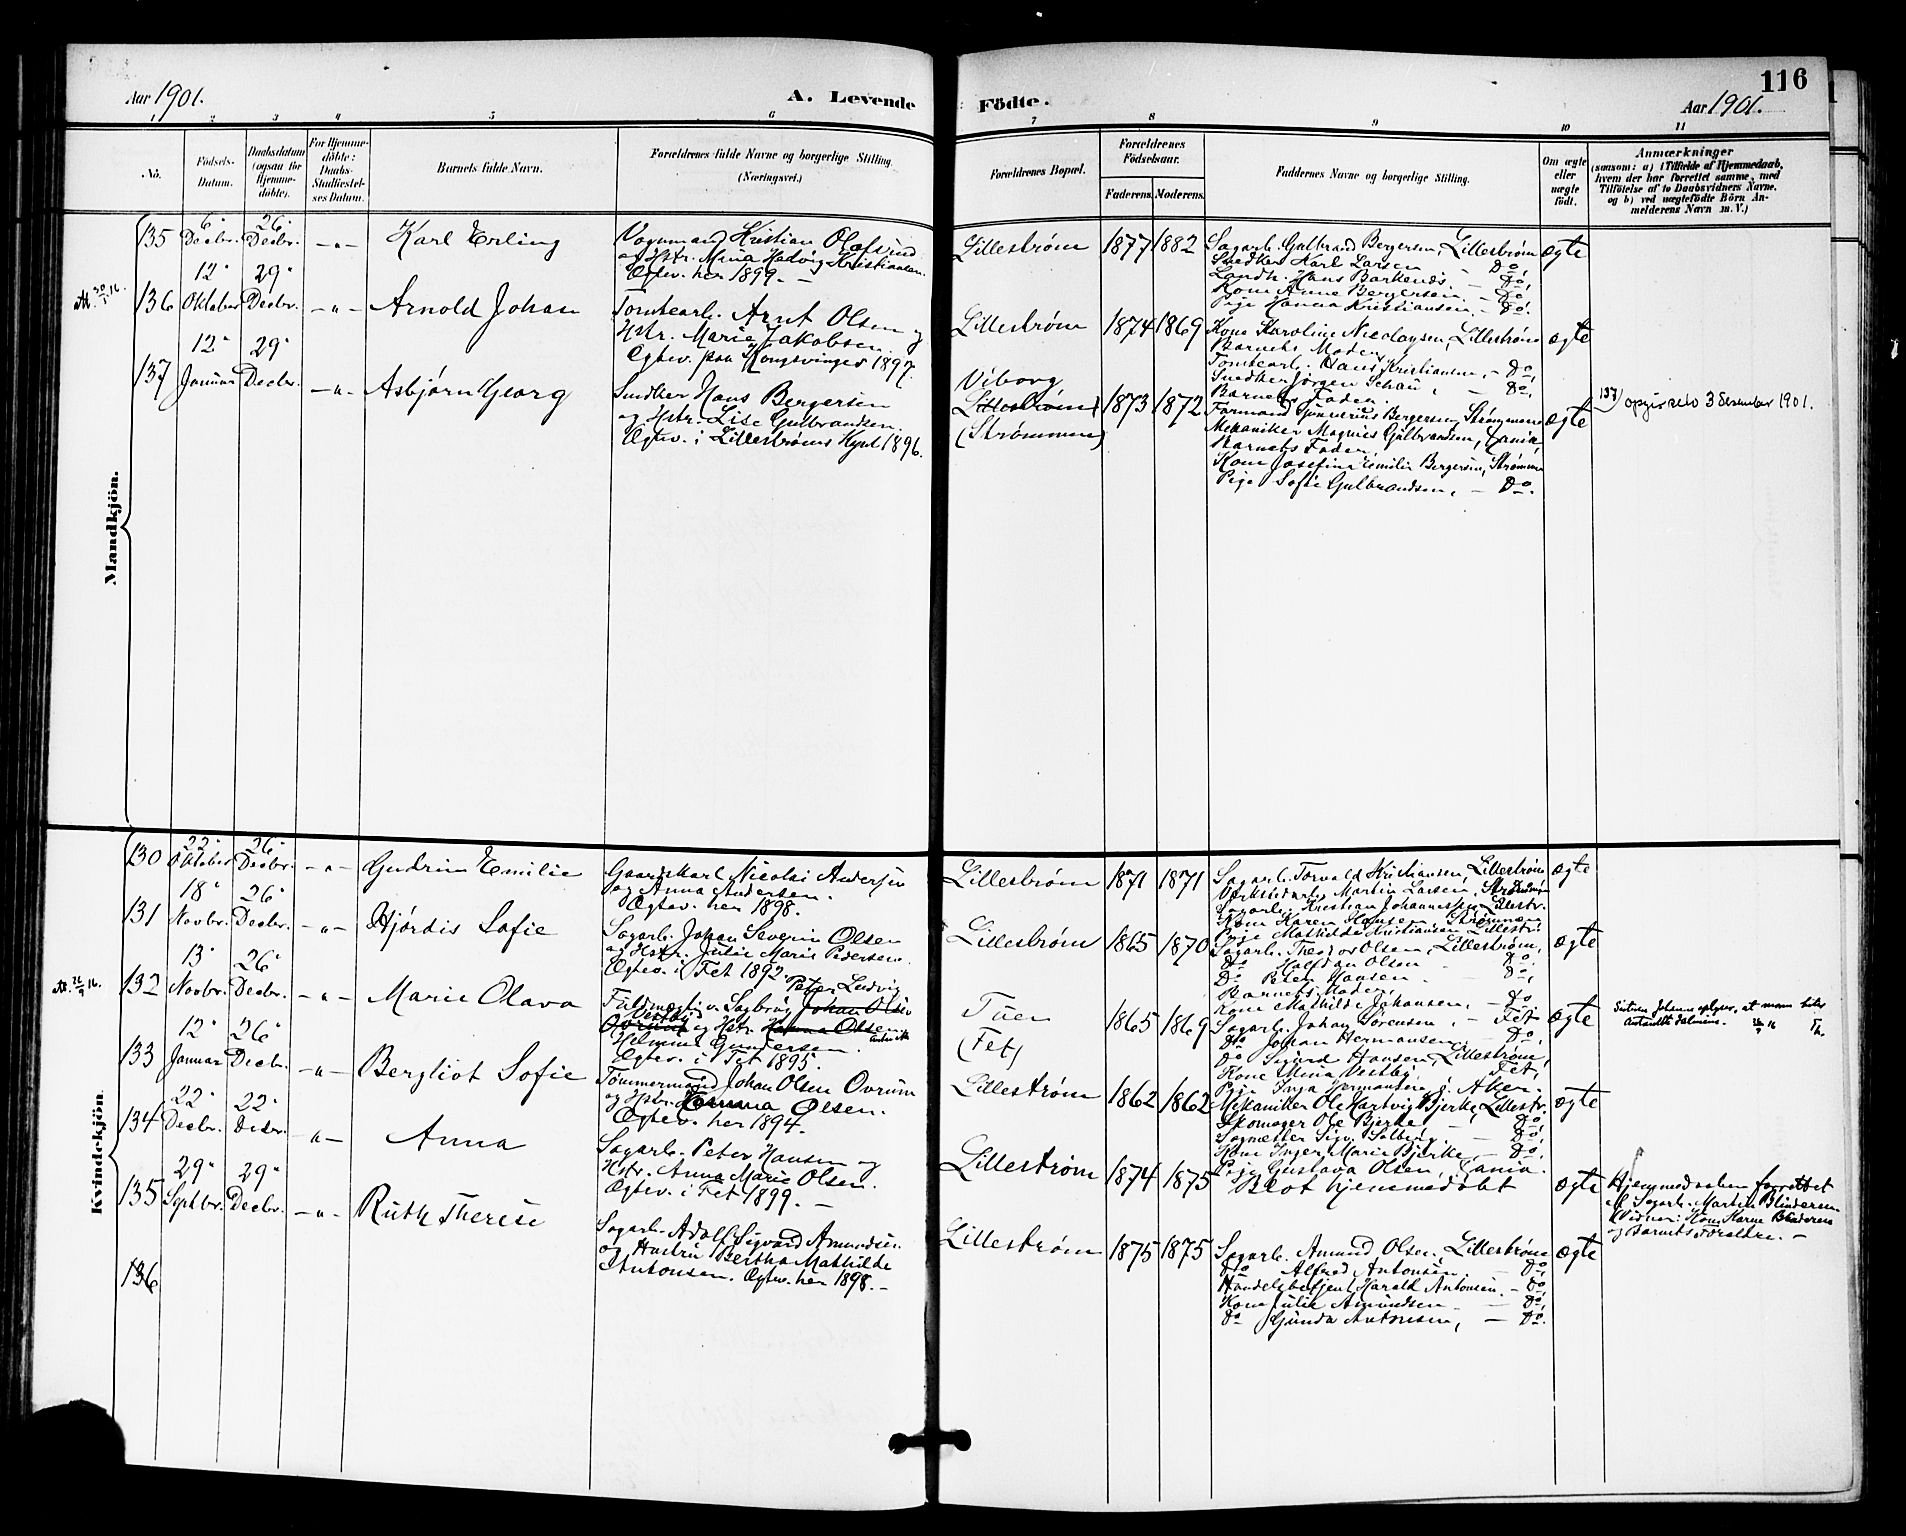 Aar 1901.
A. Levende
Födte.
116
Aar 1901.
1 2 3 4 5 6 7 8 9 10 11
No.
Födsels-Datum.
Daabsdatum (ogsaa for Hjemmedöbte).
For Hjemmedöbte: Daabs-Stadfæstelses Datum.
Barnets fulde Navn.
Forældrenes fulde Navne og borgerlige Stilling.
(Næringsvei.)
Forældrenes Bopæl.
Forældrenes Födselsaar.
Faderens. Moderens.
Faddernes Navne og borgerlige Stilling.
Om ægte eller uægte födt.
Anmærkninger
(saasom: a) i Tilfælde af Hjemmedaab,
hvem der har forrettet samme, med
Tilföielse af to Daabsvidners Navne.
og b) ved uægtefödte Börn An-
melderens Navn m. V.)
Mandkjön.
135 6' Decbr. 26' Decbr. -"- Karl Erling
Vognmand Kristian Olafsrud
og Hstr. Mina Hedvig Kristiansen.
Egtev. her 1899. —
Lillestrøm 1877 1882
Sagarb. Gulbrand Bergersen, Lillestrøm
Snedker Karl Larsen — Do,
Landh. Hans Barkenæs. — Do,
Kone Anne Bergersen. — Do
Pige Hanna Kristiansen. — Do.
ægte
136 12' Oktober 29' Decbr. -"- Arnold Johan
Tomtearb. Arnt Olsen og
Hstr. Marie Jakobsen.
Egtev. paa Kongsvinger 1897.
Lillestrøm 1874 1869
Kone Karoline Nicolaysen, Lillestrøm
Barnets Moder,
Tomtearb. Hans Kristiansen, — Do,
Snedker Jørgen Schau, — Do,
Barnets Fader.
ægte
137 12' Januar 29' Decbr. -"- Asbjørn Georg
Snedker Hans Bergersen
og Hstr. Lise Gulbrandsen.
Egtev. i Lillestrøms Kpel. 1896.
Viborg,
Lillestrøm
(Strømmen)
1873 1872
Formand Gunerius Bergersen, Strømmen
Mekaniker Magnus Gulbrandsen,
Barnets Fader,
Kone Josefine Emilie Bergersen, Strømmen
Pige Sofie Gulbrandsen, — Do.
ægte
137) 3 Desember 1901.
Kvindekjön.
130 22' Oktober 26' Decbr. -"- Gudrun Emilie
Gaardskarl Nicolai Andersen
og Anna Andersen.
Egtev. her 1898.
Lillestrøm 1871 1871
Sagarb. Torvald Kristiansen, Lillestrøm
Verkstedarb. Martin Larsen,
Sagarb. Kristian Johannesen, Lillestr.
Kone Karen Hansen, Strømmen
Pige Mathilde Kristiansen Lillestr.
ægte
131 18' Novbr. 26' Decbr. -"- Hjórdis Sofie
Sagarb. Johan Severin Olsen
og Hstr. Julie Marie Pedersen.
Egtev. i Fet 1892.
Lillestrøm 1865 1870
Sagarb. Theodor Olsen, Lillestrøm,
Do Halfdan Olsen — Do,
Do Peter Hansen — Do,
Barnets Moder,
Kone Mathilde Johansen, — Do
ægte
132 13' Novbr. 26' Decbr. -"- Marie Olava
Peter Ludvig
Fuldmægtig v. Sagbrug Johan Olsen
Vestby
Ovrum og Hstr. Hanna Olsen
Helmine Gundersen.
Egtev. i Fet 1895.
Tuen
(Fet)
1865 1869
Sagarb. Johan Sørensen, — Fet
Do Johan Hermansen, — Do,
Do Sigurd Hansen, Lillestrøm,
Kone Mina Vestby, Fet,
Pige Inga Hermansen, i Aker.
ægte
133 12' Januar 26' Decbr. -"- Bergliot Sofie
Tømmermand Johan Olsen Ovrum
og Hstr. Hanna Olsen.
Egtev. her 1894.
Lillestrøm 1862 1862
Mekaniker Ole Hartvig Bjerke, Lillestr.
Skomager Ole Bjerke — Do,
Sagmester Sigv. Solberg, — Do,
Kone Inger Marie Bjerke, — Do,
Pige Gustava Olsen,
ægte
134 22' Decbr. 22' Decbr. -"- Anna
Sagarb. Peter Hansen og
Hstr. Anna Marie Olsen.
Egtev. i Fet 1899. —
Lillestrøm 1874 1875
Blot hjemmedøbt
ægte
Hjemmedaaben forrettet
af Sagarb. Martin Blindersen
Vidner: Kone Karne Blindersen
og Barnets Forældre. —
135 29' Septbr. 29' Decbr. -"- Ruth Therese
Sagarb. Adolf Sigvard Amundsen
og Hustru Bertha Mathilde
Antonsen. Egtev. her 1898. —
Lillestrøm 1875 1875
Sagarb. Amund Olsen, Lillestrøm
Do Alfred Antonsen — Do,
Handelsbetjent Harald Antonsen, — Do,
Kone Julie Amundsen — Do,
Do Gunda Antonsen, — Do.
ægte
136